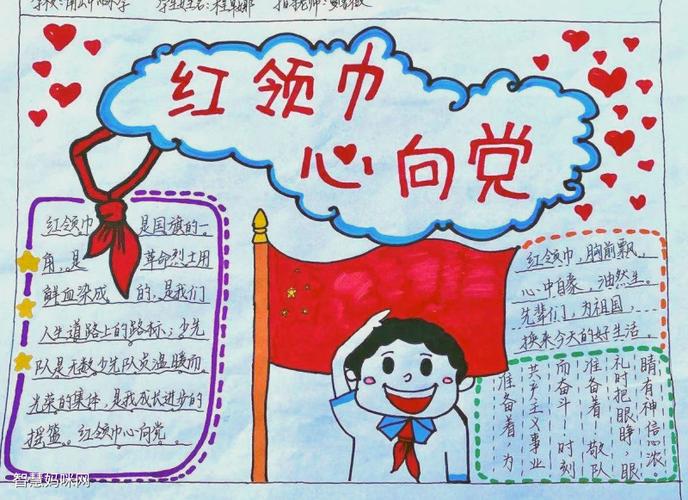 学生姓名:
指老师:
红领巾
心向党
红领巾 是国旗的一
角,是 革命烈士用
鲜血染成 的,是我们
人生道路上的路标;少先
队是无数少先队员温暖而
光荣的集体,是我成长进步的
摇篮。红领巾心向党。
红领巾,胸前飘。
心中自豪,油然生。
先辈们,为祖国,
换来今天的好生活。
睛有神信心浓。
礼时把眼睁,眼
准备着 敬队
而奋斗!时刻
共产主义事业
准备着为
智慧妈咪网